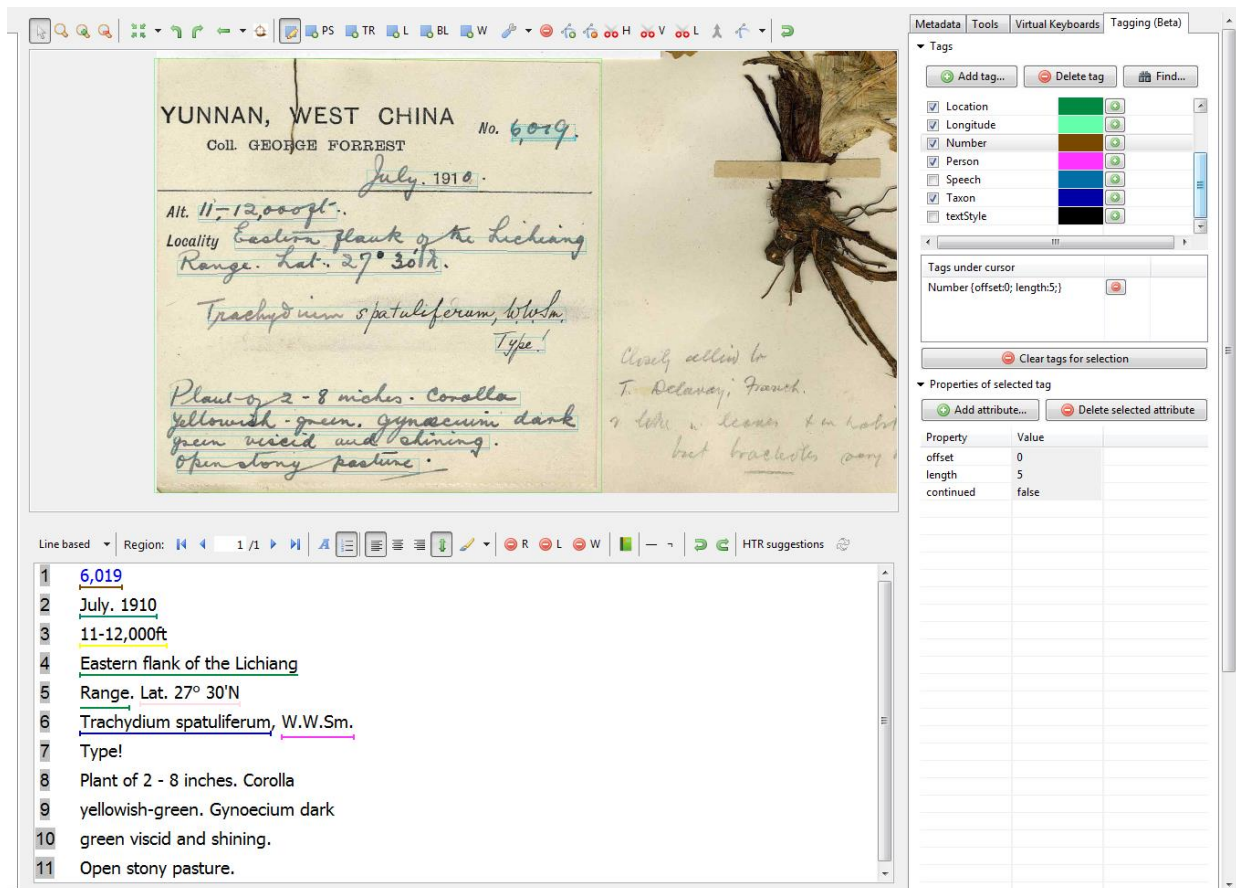 PS TR L BL W H V L
YUNNAN, WEST CHINA
No. 6,019.
Coll. GEORGE FORREST
July. 1910.
Alt. 11-12,000ft.
Locality Eastern flank of the Lichiang
Range. Lat. 27° 30'N.
Trachydium spatuliferum, W.W.Sm.
Type!
Plant of 2 - 8 inches. Corolla
yellowish-green. Gynoecium dark
green viscid and shining.
Open stony pasture.
Closely allied to
T. Delavayi Franch.
& like in leaves & in habit
but bracteoles very
Line based Region: 1 /1 R L W HTR suggestions
1 6,019
2 July. 1910
3 11-12,000ft
4 Eastern flank of the Lichiang
5 Range. Lat. 27° 30'N
6 Trachydium spatuliferum, W.W.Sm.
7 Type!
8 Plant of 2 - 8 inches. Corolla
9 yellowish-green. Gynoecium dark
10 green viscid and shining.
11 Open stony pasture.
Metadata Tools Virtual Keyboards Tagging (Beta)
Tags
Add tag... Delete tag Find...
Location
Longitude
Number
Person
Speech
Taxon
textStyle
Tags under cursor
Number {offset:0; length:5;}
Clear tags for selection
Properties of selected tag
Add attribute... Delete selected attribute
Property Value
offset 0
length 5
continued false